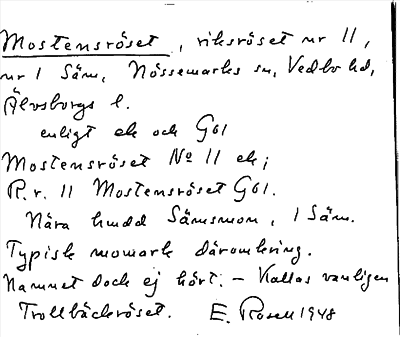 Mostensröset, riksröset nr 11,
nr 1 Säm, Nössemarks sn, Vedbo hd,
Älvsborgs l.
enligt ek och G61
Mostensröset No 11 ek;
R.r. 11 Mostensröset G61.
Nära hmdd Sämsmon, 1 Säm.
Typisk momark däromkring.
Namnet dock ej hört. – Kallas vanligen
Trollbäckröset. E. Rosell 1948